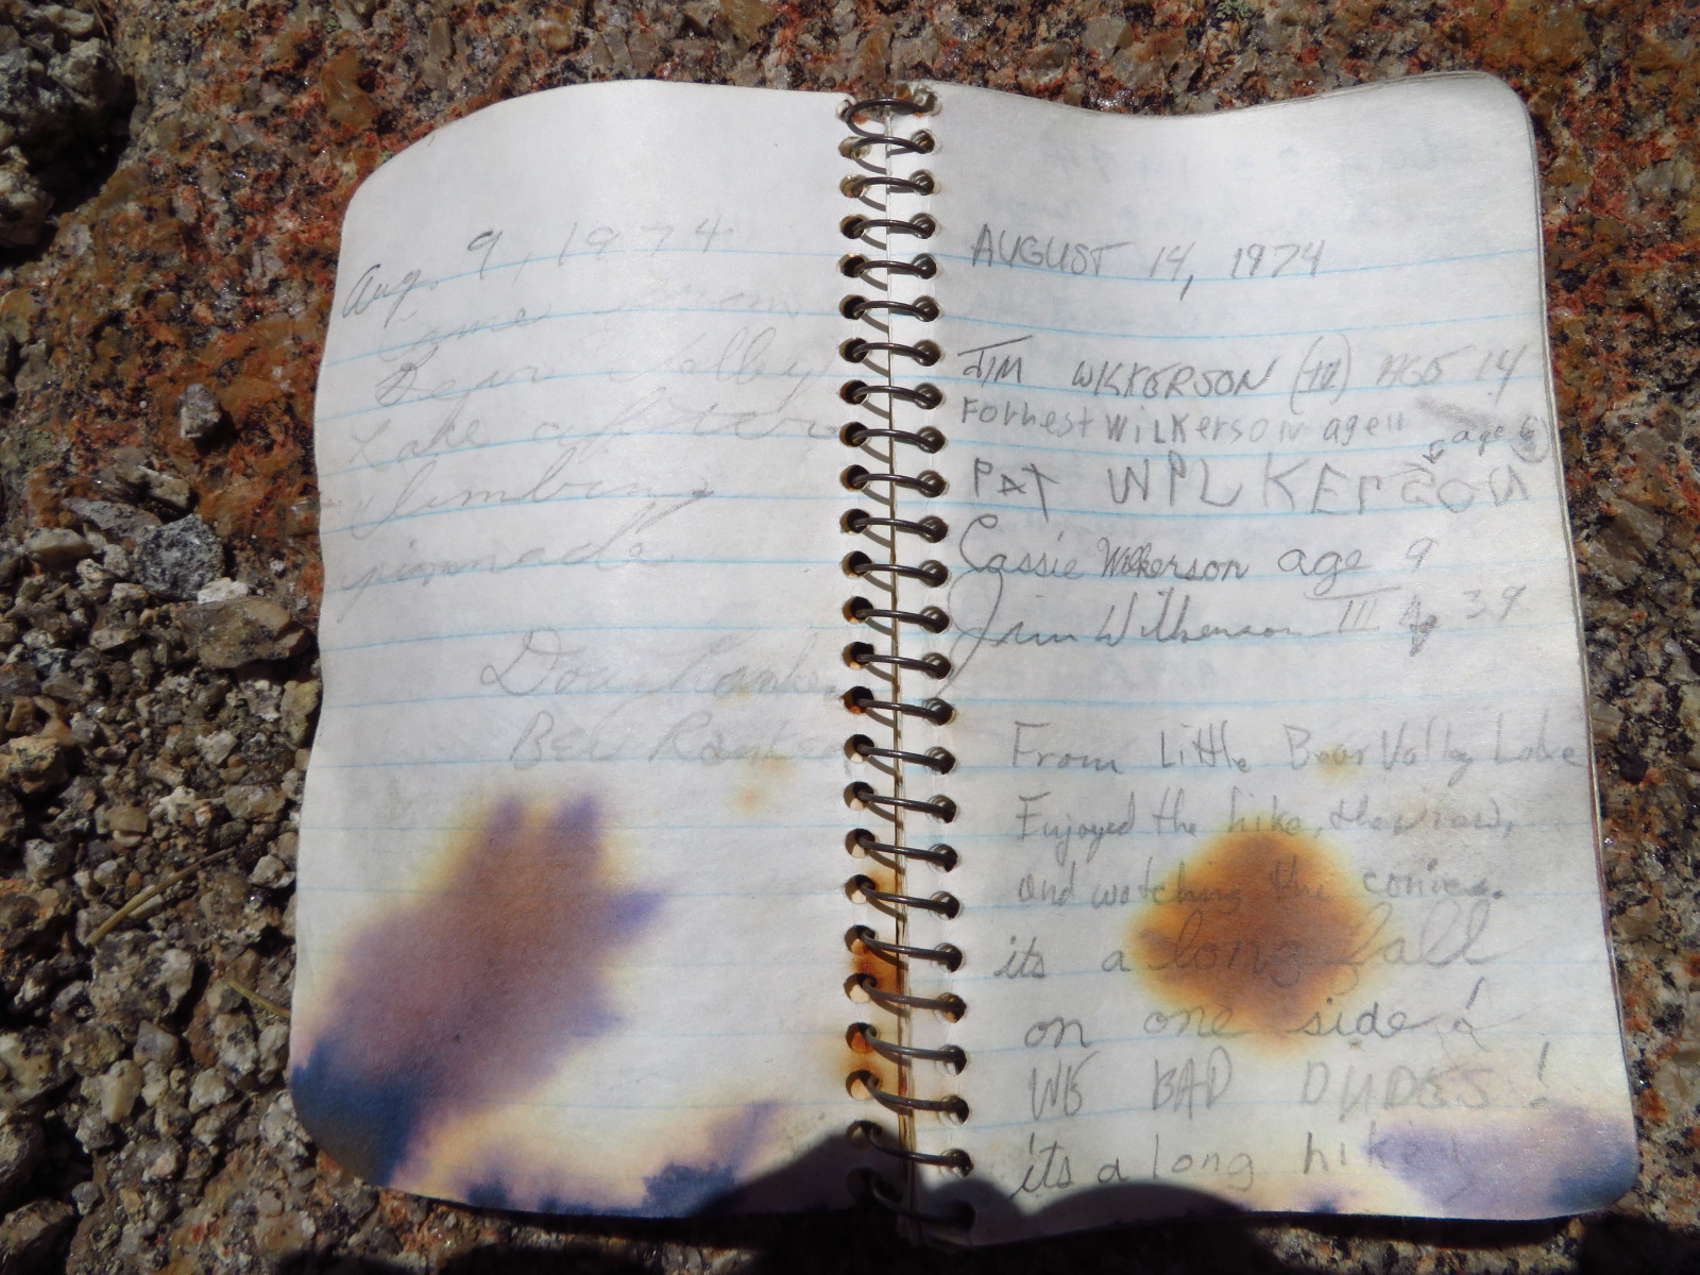 Aug. 9, 1974
Came from
Bear Valley
Lake after
climbing
pinnacle
Doug
Bev
AUGUST 14, 1974
JIM WILKERSON (IV) AGE 14
Forrhest WiLKerson age 11
age 6
PAT WPLKErSON
Cassie Wilkerson age 9
Jim Wilkerson III Age 39
From Little Bear Vally Lake
Enjoyed the hike, the view,
and watching the conies.
its a long fall
on one side!
WE BAD DUDES!
its a long hike!